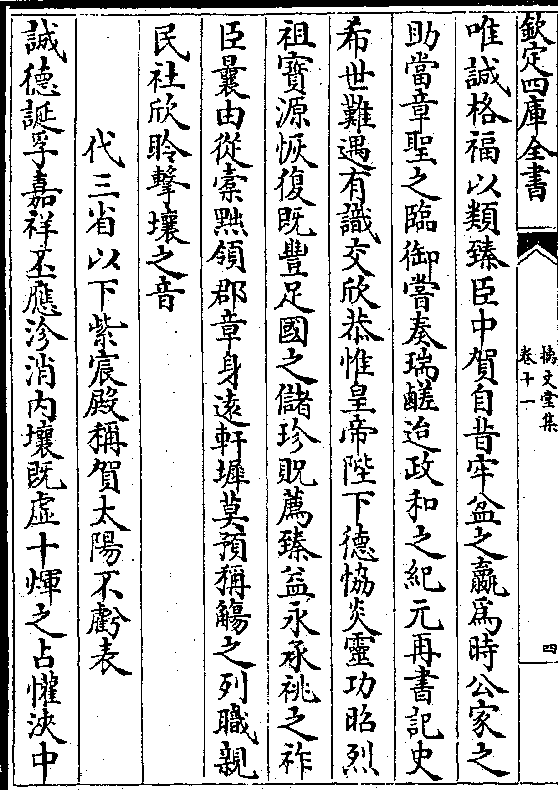 欽定四庫全書
摛文堂集
卷十一
四
唯誠格福以類臻臣中賀自昔牢盆之贏為時公家之
助當章聖之臨御嘗奏瑞鹺迨政和之紀元再書記史
希世難遇有識交欣恭惟皇帝陛下德恊炎靈功昭烈
祖寳源恢復既豐足國之儲珍貺薦臻益永承祧之祚
臣曩由從橐黙領郡章身逺軒墀莫預稱觴之列職親
民社欣聆擊壤之音
代三省以下紫宸殿稱賀太陽不虧表
誠德誕孚嘉祥丕應沴消内壤既虛十煇之占懽浹中